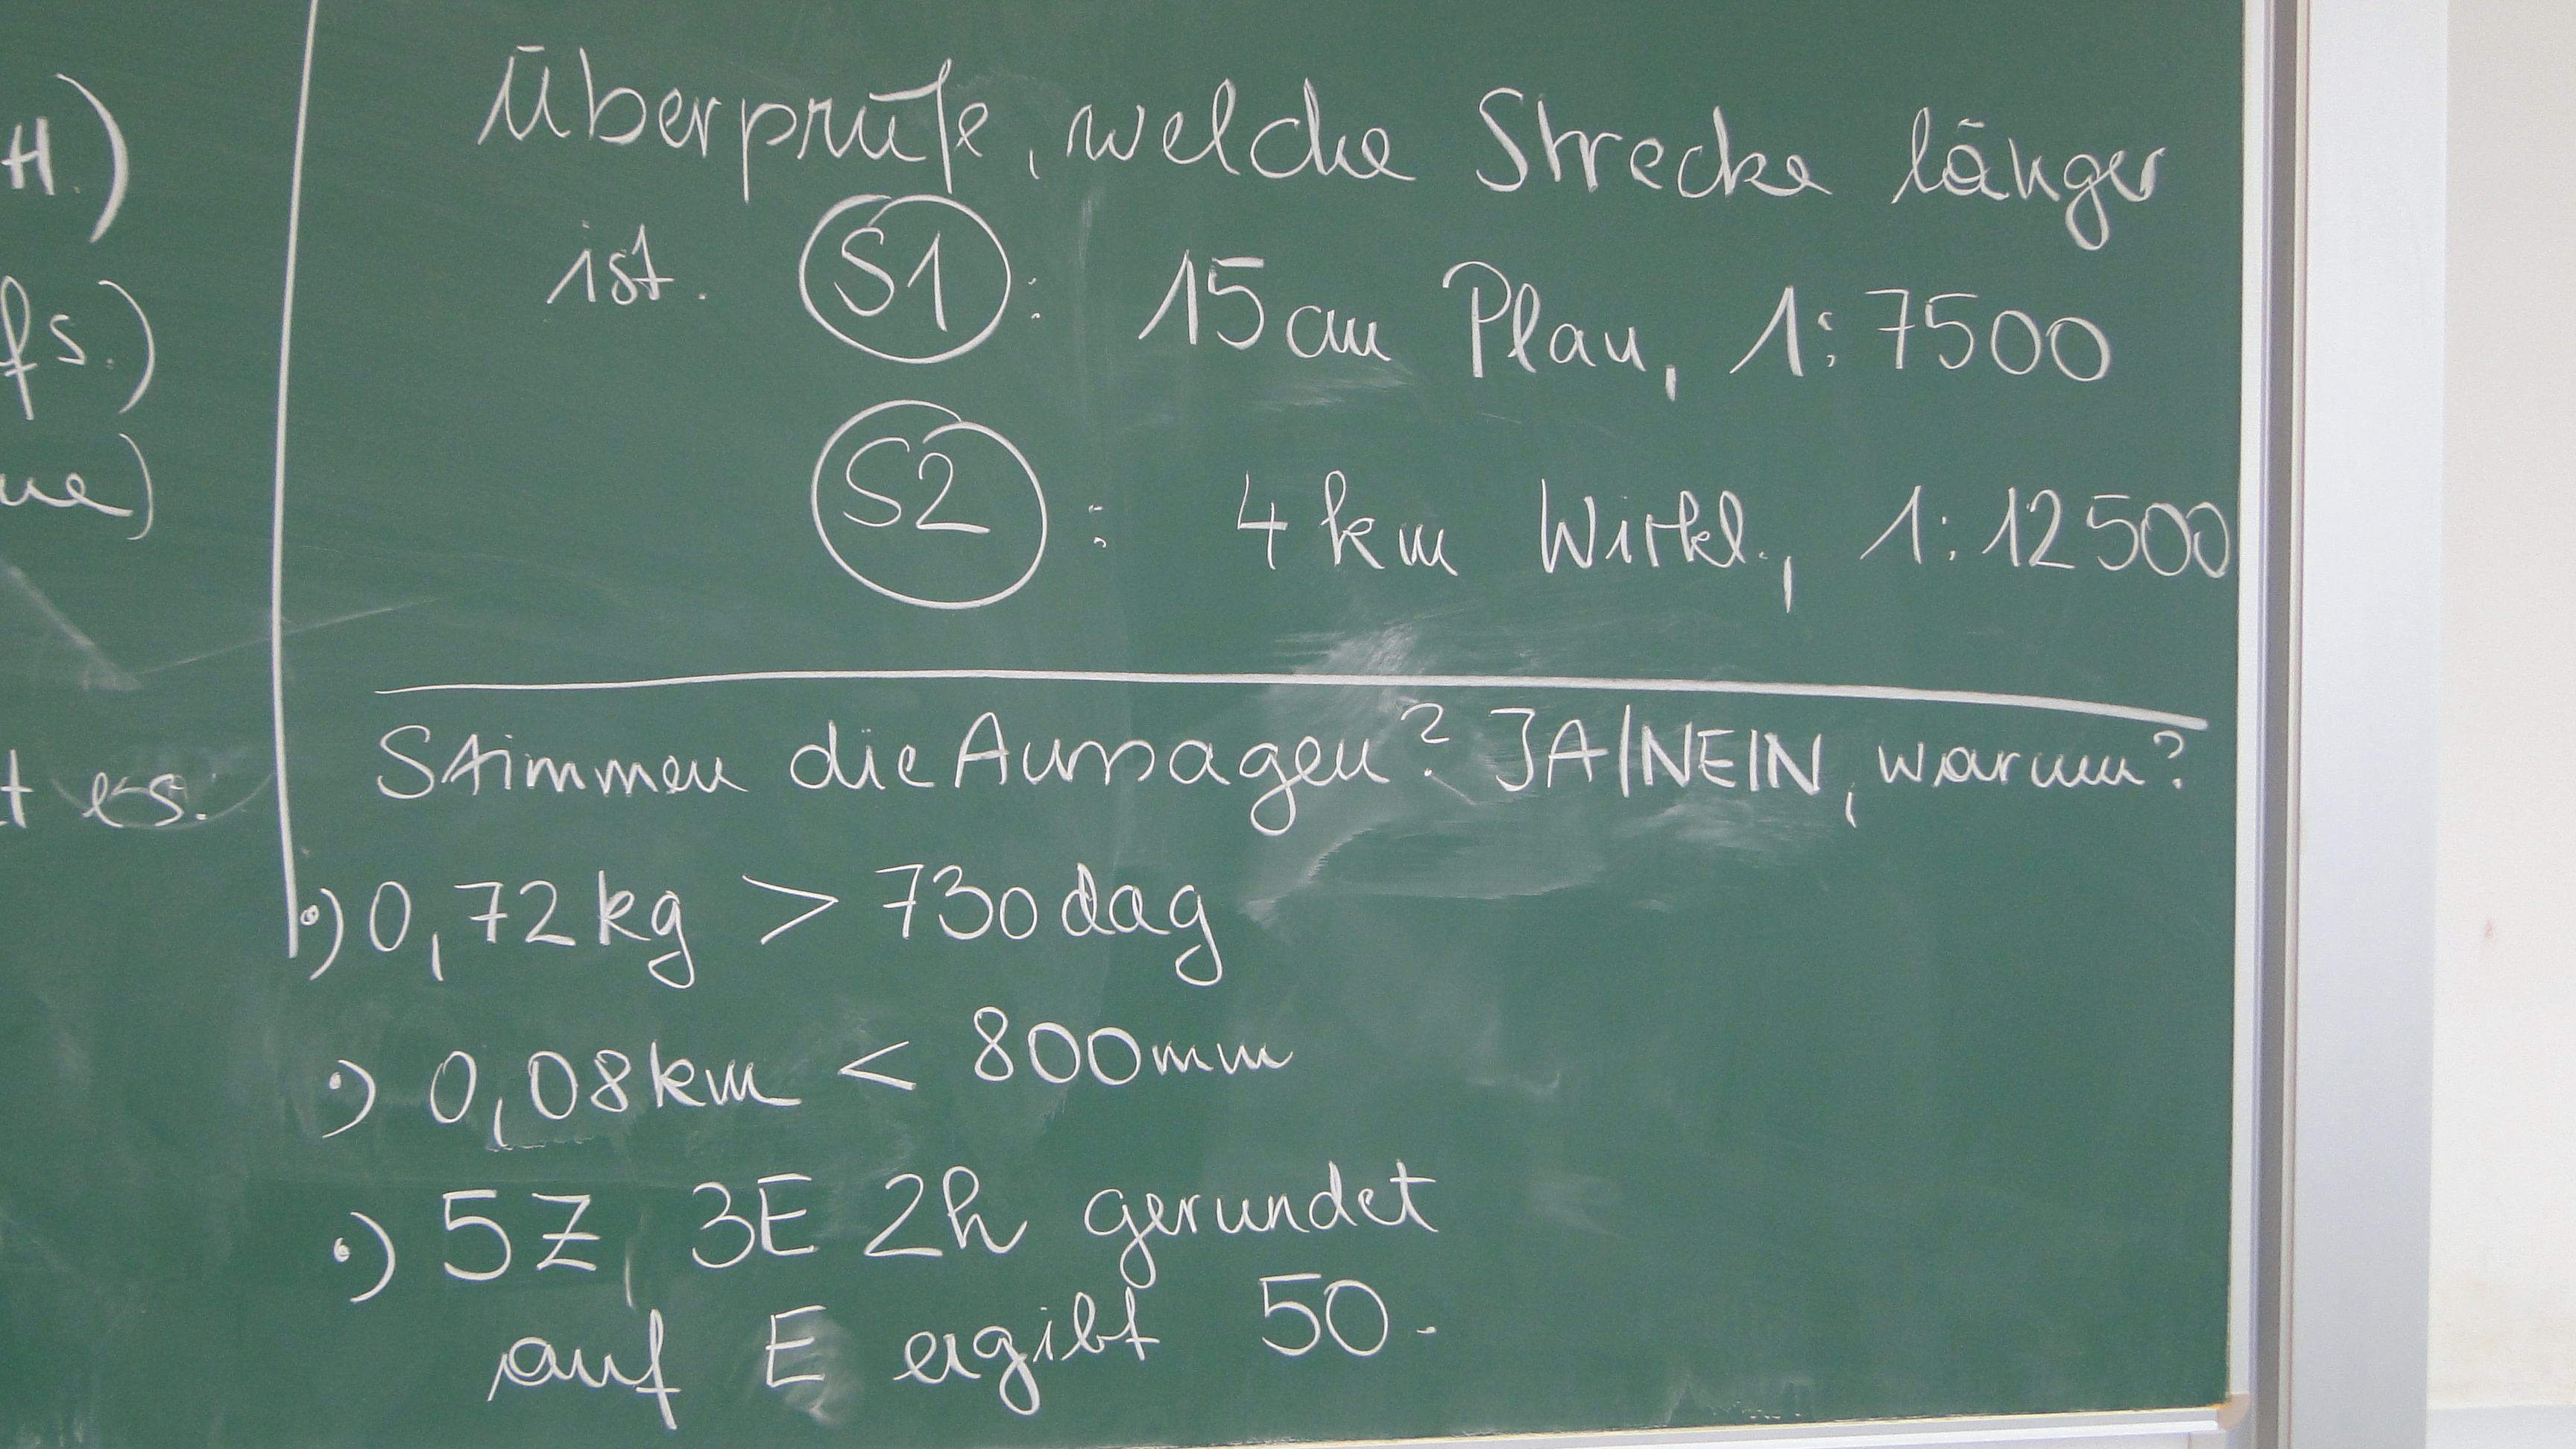 H.)
fs.)
ue)
t es.
Überprüfe, welche Strecke länger
ist. S1: 15 cm Plan, 1:7500
S2: 4 km Wirkl., 1:12500
Stimmen die Aussagen? JA/NEIN, warum?
•) 0,72 kg > 730 dag
•) 0,08 km < 800 mm
•) 5Z, 3E 2h gerundet
auf E ergibt 50.